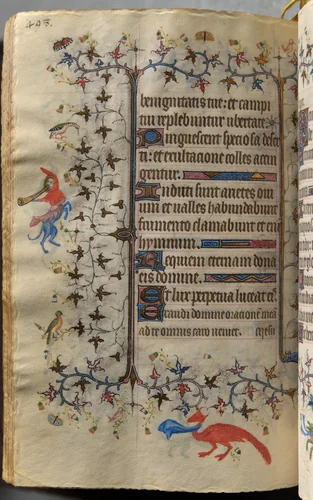 403.
benignitatis tue: et campi
tui replebuntur ubertate.
Pinguescent speciosa deser
ti: et exultacione colles accin
gentur.
Induti sunt arietes oui
um et ualles habundabunt
frumento clamabunt et eni
hympnum.
Requiem eternam dona
eis domine.
Et lux perpetua luceat eis.
Exaudi domine oracionem mea
ad te omnis caro ueniet.